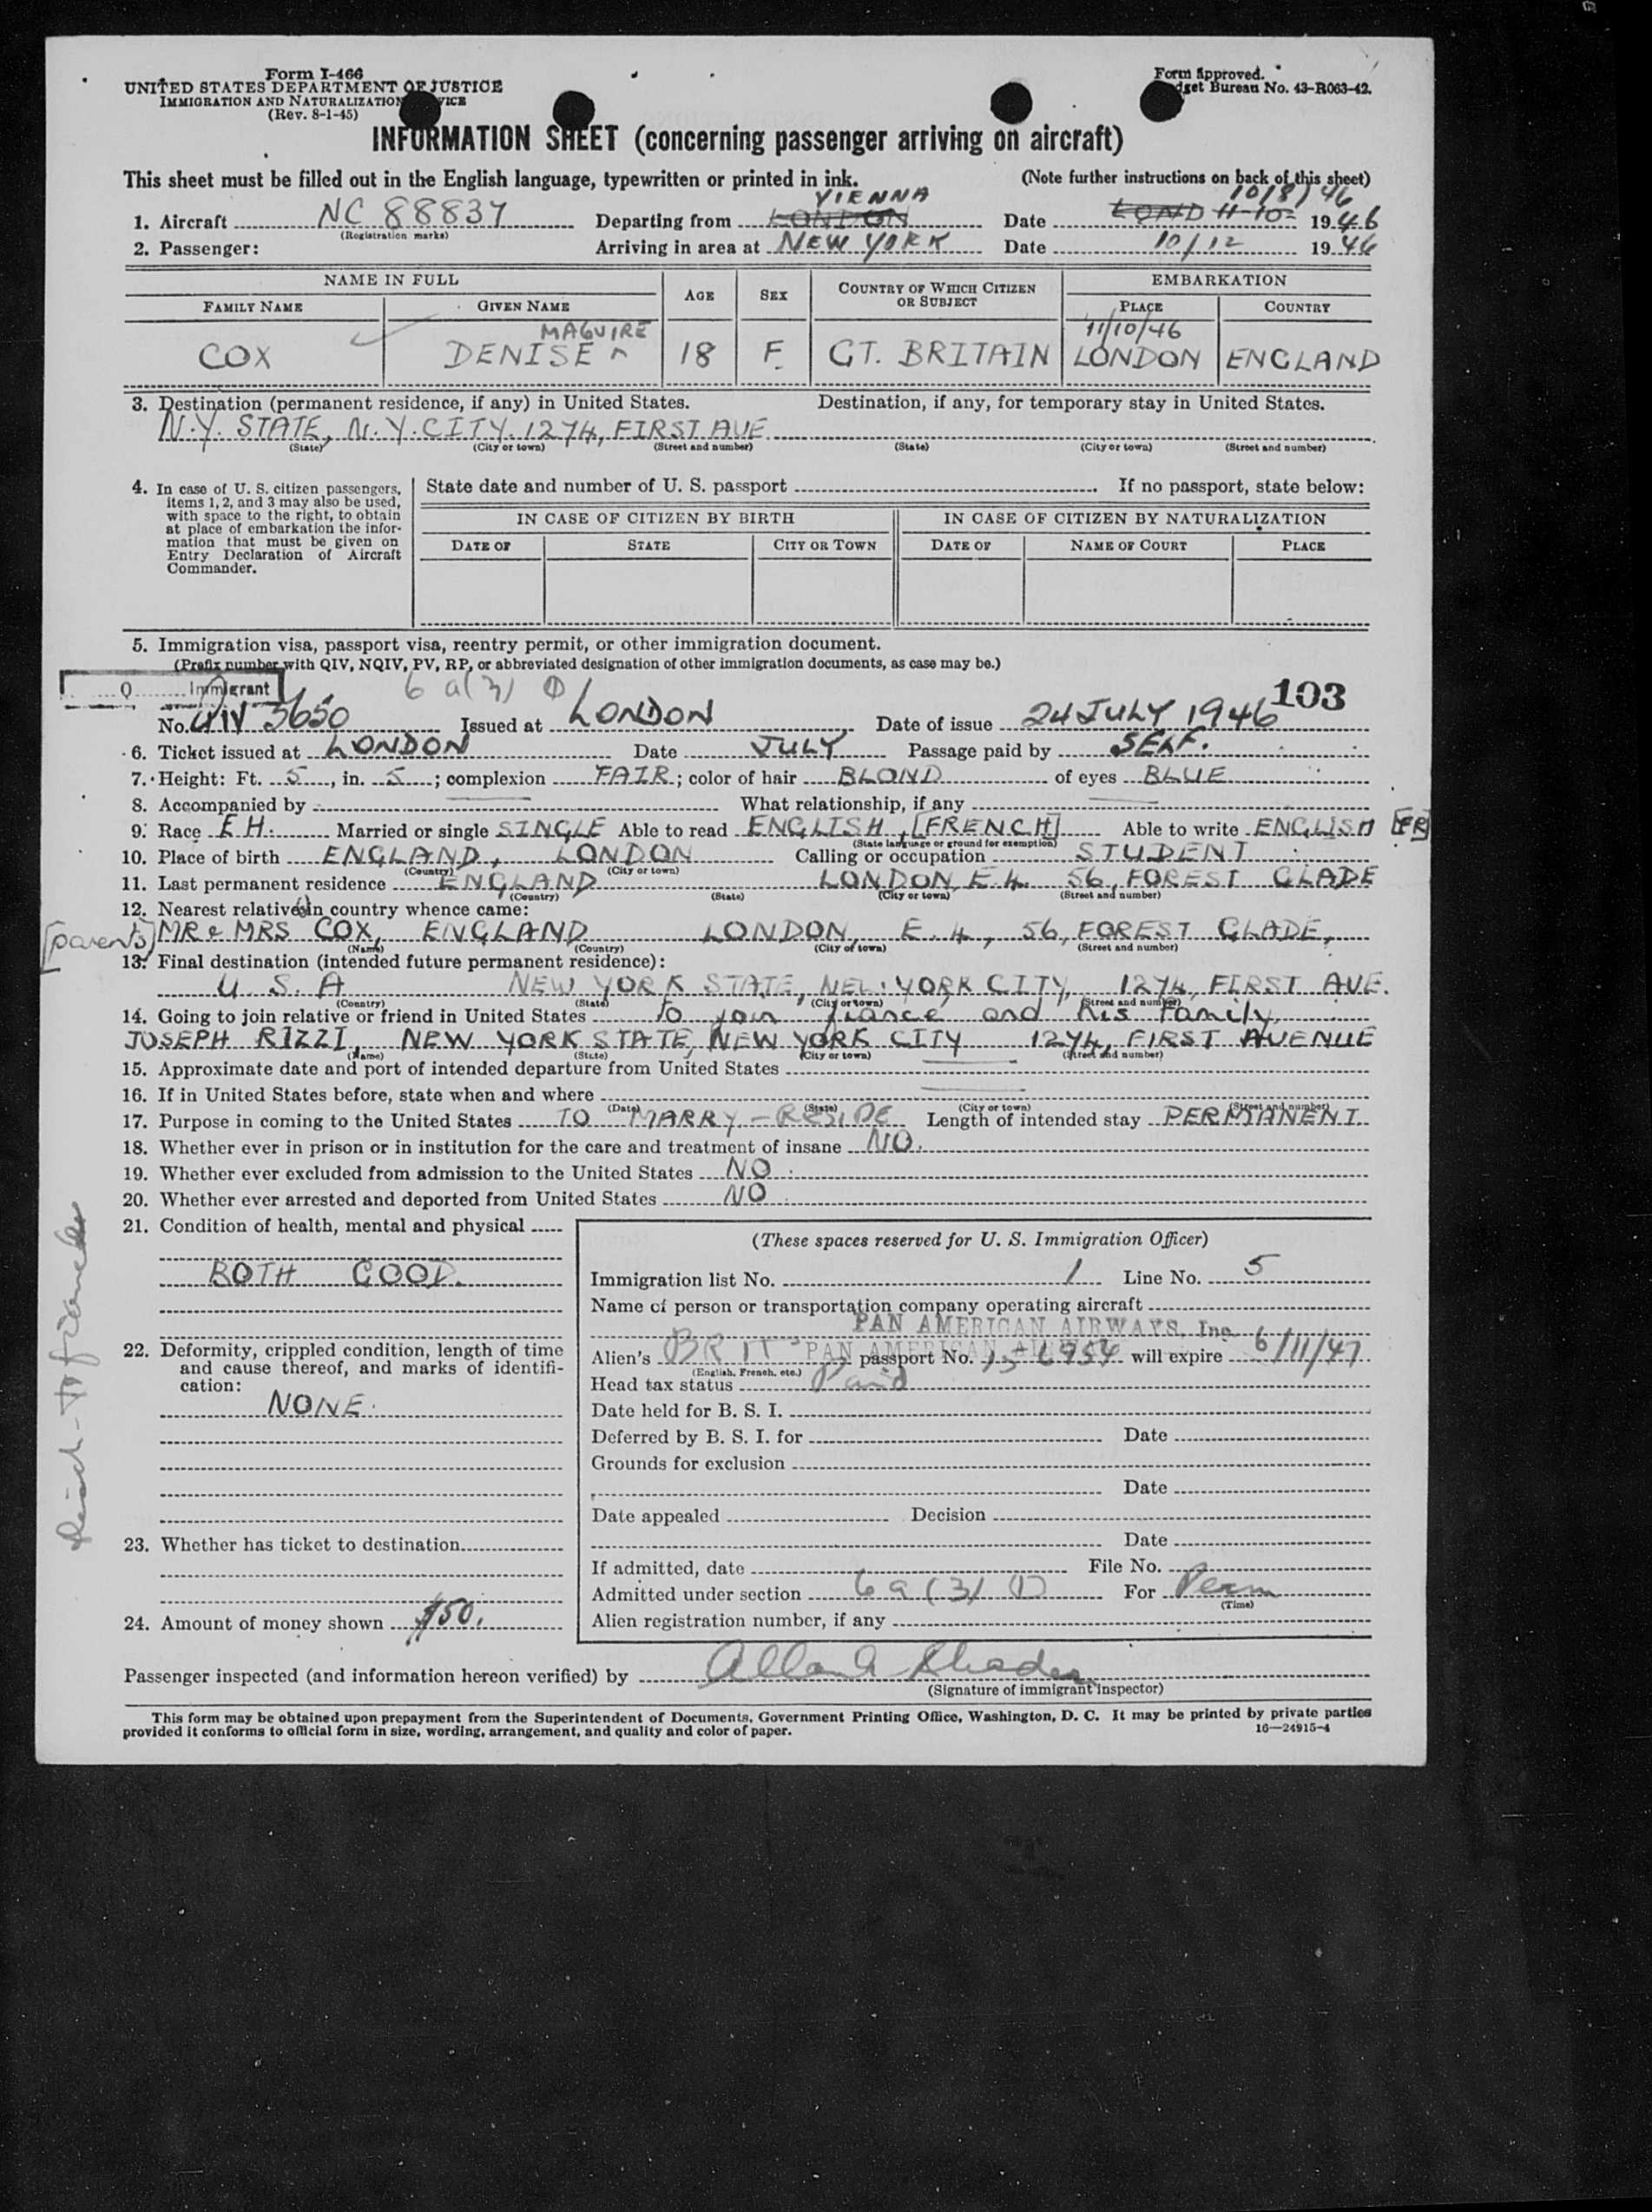 Form I-466
UNITED STATES DEPARTMENT OF JUSTICE
IMMIGRATION AND NATURALIZATION VICE
(Rev. 8-1-45)
Form approved.
dget Bureau No. 43-R063-42.
INFORMATION SHEET (concerning passenger arriving on aircraft)
This sheet must be filled out in the English language, typewritten or printed in ink. (Note further instructions on back of this sheet)
VIENNA 10/8/46
1. Aircraft NC 88837 Departing from LONDON Date LOND 11-10- 1946
(Registration marks)
2. Passenger: Arriving in area at NEW YORK Date 10/12 1946
NAME IN FULL AGE SEX COUNTRY OF WHICH CITIZEN OR SUBJECT EMBARKATION
FAMILY NAME GIVEN NAME PLACE COUNTRY
MAGUIRE 11/10/46
COX DENISE ^ 18 F. GT. BRITAIN LONDON ENGLAND
3. Destination (permanent residence, if any) in United States. Destination, if any, for temporary stay in United States.
N.Y. STATE, N.Y. CITY. 1274, FIRST AVE
(State) (City or town) (Street and number) (State) (City or town) (Street and number)
4. In case of U. S. citizen passengers, items 1, 2, and 3 may also be used, with space to the right, to obtain at place of embarkation the information that must be given on Entry Declaration of Aircraft Commander.
State date and number of U. S. passport If no passport, state below:
IN CASE OF CITIZEN BY BIRTH IN CASE OF CITIZEN BY NATURALIZATION
DATE OF STATE CITY OR TOWN DATE OF NAME OF COURT PLACE
5. Immigration visa, passport visa, reentry permit, or other immigration document.
(Prefix number with QIV, NQIV, PV, RP, or abbreviated designation of other immigration documents, as case may be.)
Q Immigrant 6 a(3) 103
No. QIV 3650 Issued at LONDON Date of issue 24 JULY 1946
6. Ticket issued at LONDON Date JULY Passage paid by SELF.
7. Height: Ft. 5, in. 5; complexion FAIR; color of hair BLOND of eyes BLUE
8. Accompanied by What relationship, if any
9. Race EH. Married or single SINGLE Able to read ENGLISH, [FRENCH] Able to write ENGLISH [FR]
(State language or ground for exemption)
10. Place of birth ENGLAND, LONDON Calling or occupation STUDENT
(Country) (City or town)
11. Last permanent residence ENGLAND LONDON, E.4. 56, FOREST GLADE
(Country) (State) (City or town) (Street and number)
12. Nearest relative(s) in country whence came:
[parents] MR & MRS COX, ENGLAND LONDON, E.4, 56, FOREST GLADE,
(Name) (Country) (City or town) (Street and number)
13. Final destination (intended future permanent residence):
U.S.A NEW YORK STATE, NEW YORK CITY, 1274, FIRST AVE.
(Country) (State) (City or town) (Street and number)
14. Going to join relative or friend in United States To join fiance and his family,
JOSEPH RIZZI, NEW YORK STATE, NEW YORK CITY 1274, FIRST AVENUE
(Name) (State) (City or town) (Street and number)
15. Approximate date and port of intended departure from United States
16. If in United States before, state when and where
(Date) (State) (City or town) (Street and number)
17. Purpose in coming to the United States TO MARRY - RESIDE Length of intended stay PERMANENT
18. Whether ever in prison or in institution for the care and treatment of insane NO.
19. Whether ever excluded from admission to the United States NO
20. Whether ever arrested and deported from United States NO
21. Condition of health, mental and physical
BOTH GOOD.
22. Deformity, crippled condition, length of time and cause thereof, and marks of identification:
NONE.
23. Whether has ticket to destination
24. Amount of money shown $50.
(These spaces reserved for U. S. Immigration Officer)
Immigration list No. 1 Line No. 5
Name of person or transportation company operating aircraft
PAN AMERICAN AIRWAYS, Inc.
PAN AMERICAN
Alien's BRIT passport No. will expire 6/11/47
(English, French, etc.)
Head tax status Paid
Date held for B. S. I.
Deferred by B. S. I. for Date
Grounds for exclusion
Date
Date appealed Decision
Date
If admitted, date File No.
Admitted under section 6 a (3) (1) For Perm
(Time)
Alien registration number, if any
Passenger inspected (and information hereon verified) by Allan A Rhodes
(Signature of immigrant inspector)
This form may be obtained upon prepayment from the Superintendent of Documents, Government Printing Office, Washington, D. C. It may be printed by private parties
provided it conforms to official form in size, wording, arrangement, and quality and color of paper. 16—24915-4